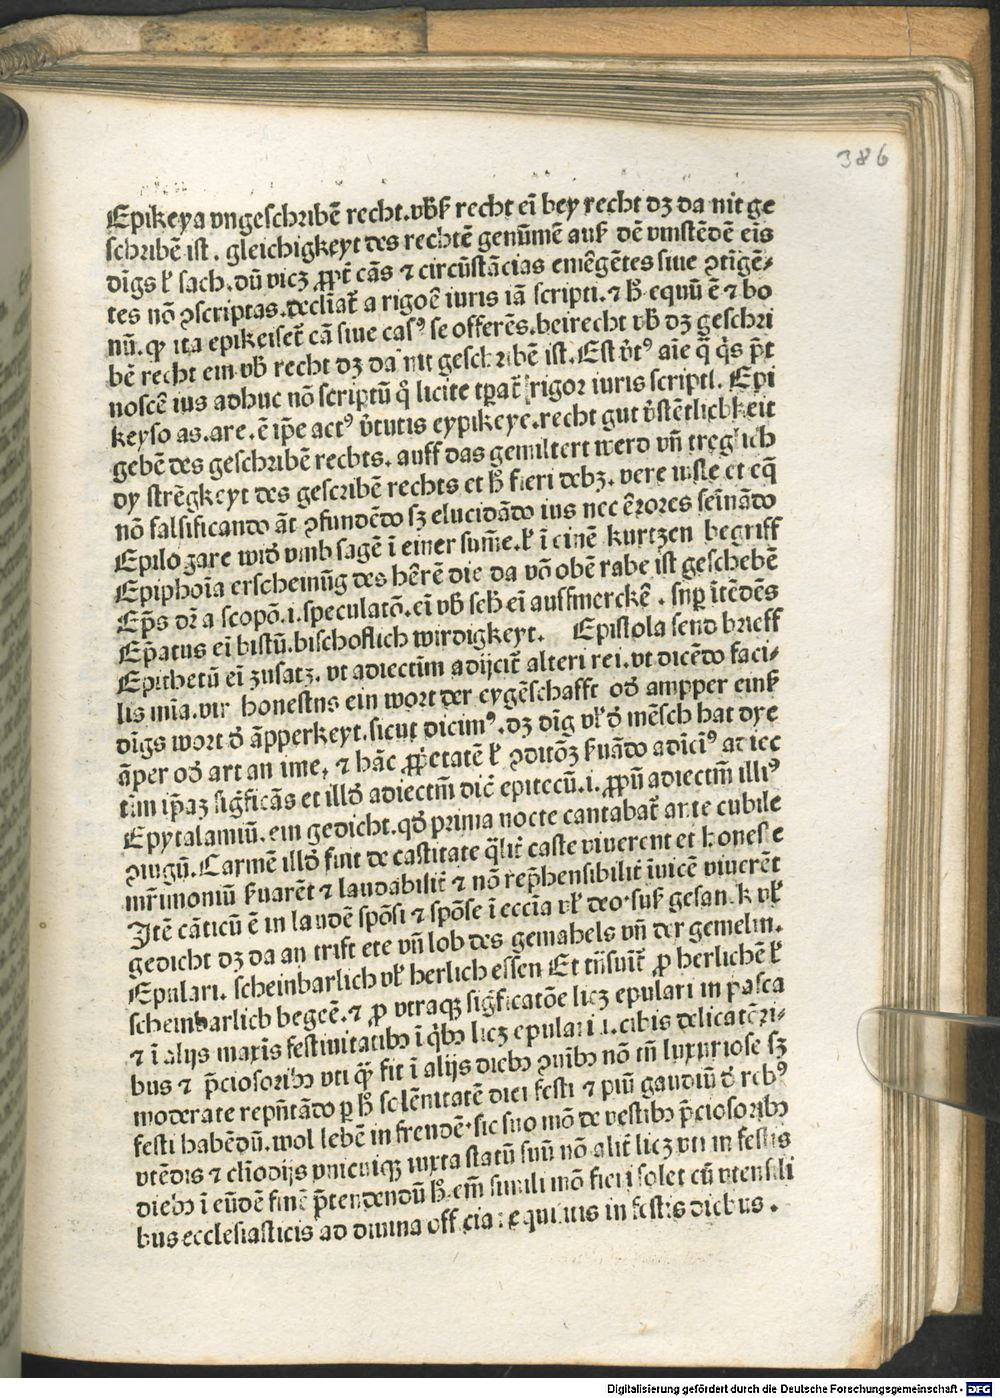 386
Epikeya vngeschribē recht. vb͛k recht eī bey recht dʒ da nit ge
schribē ist. gleichigkeyt des rechtē genūmē auß dē vmstēdē eīs
dīgs ł sach. dū vicʒ ꝓpt̄ cās ⁊ circūstācias emēgētes siue ꝯtīgē⸗
tes nō ꝯscriptas. declīat̄ a rigoē iuris iā scripti. ⁊ h̄ equū ē ⁊ bo
nū. qꝫ ita epikeiset̄ cā siue casꝰ se offerēs. beirecht vb̄ dʒ geschri
bē recht ein vb̄ recht dʒ da nit geschribē ist. Est v̓tꝰ aīe q̄ q̓s p̄t
noscē ius adhuc nō scriptū q̊ licite tꝑat̄ rigor iuris scripti. Epi
keyso as. are. ē ip̄e actꝰ v̓tutis eypikeye. recht gut v̓stētlichkeit
gebē des geschribē rechts. auff das gemiltert werd vn̄ treglich
dy strēgkeyt des gescribē rechts et h̄ fieri debʒ. vere iuste et eq̄
nō falsificando āt ꝯfundēdo sʒ elucidādo ius nec ērores semīādo
Epilogare wid͛ vmb sagē ī einer sum̄e. ł ī einē kurtzen begriff
Epiphoīa erscheinūg des hērē die da vō obē rabe ist geschehē
Ep̄s dr̄ a scopō. i. speculatō. eī vb̄ seh̄ eī auffmerckē. sup̄ ītēdēs
Ep̄atus eī bistū. bischoflich wirdigkeyt. Epistola send brieff
Epithetū eī zusatz. vt adiectiūm adijcit̄ alteri rei. vt dicēdo faci⸗
lis mīa. vir honestus ein wort der eygēschafft od͛ ampper einß
dīgs wort d͛ āpperkeyt. sicut dicimꝰ. dʒ dīg vł d͛ mēsch hat dye
āper od͛ art an ime, ⁊ hāc ꝓp̓etatē ł ꝯditōʒ ẜuādo adīciꝰ adiec
tīm ip̄aʒ sig̓ficās et illd͛ adiectīm dic̄ epitetū. i. ꝓpū adiectīm illiꝰ
Epytalamiū. ein gedicht. qd͛ prima nocte cantabat̄ ante cubile
ꝯiugū. Carmē illd͛ fuit de castitate q̓lit̄ caste viuerent et honeste
mr̄imoniū ẜuarēt ⁊ laudabilit̄ ⁊ nō rep̄hensibilit̄ īuicē viuerēt
Itē cāticū ē in laudē spōsi ⁊ spōse ī eccīa vł deo. suß gesank vł
gedicht dʒ da an trift ete vn̄ lob des gemahels vn̄ der gemelin.
Epulari. scheinbarlich vł herlich essen Et tn̄ suīt̄ ꝓ herlichē ł
scheinbarlich begeē. ⁊ ꝓ vtraqꝫ sig̓ficatōe licʒ epulari in pasca
⁊ ī alijs maxīs festiuitatibꝫ ī q̓bꝫ licʒ epulari i. cibis delicatōri⸗
bus ⁊ p̄ciosoribꝫ vti qꝫ̄ fit ī alijs diebꝫ ꝯuībꝫ nō tn̄ luxuriose sʒ
moderate rep̄ntādo ꝑ h̄ solēnitatē diei festi ⁊ piū gaudiū d͛ rebꝰ
festi habēdū. wol lebē in freudē. sic suo mō de vestibꝫ p̄ciosoribꝫ
vtēdis ⁊ clīodijs vnicuiqꝫ iuxta statū suū nō alit̄ licʒ vti in festis
diebꝫ ī eūdē finē p̄tendendū h̄. em̄ simili mō fieri solet cū vtensili
bus ecclesiasticis ad diuina officia in festis diebus.
Digitalisierung gefördert durch die Deutsche Forschungsgemeinschaft - DFG